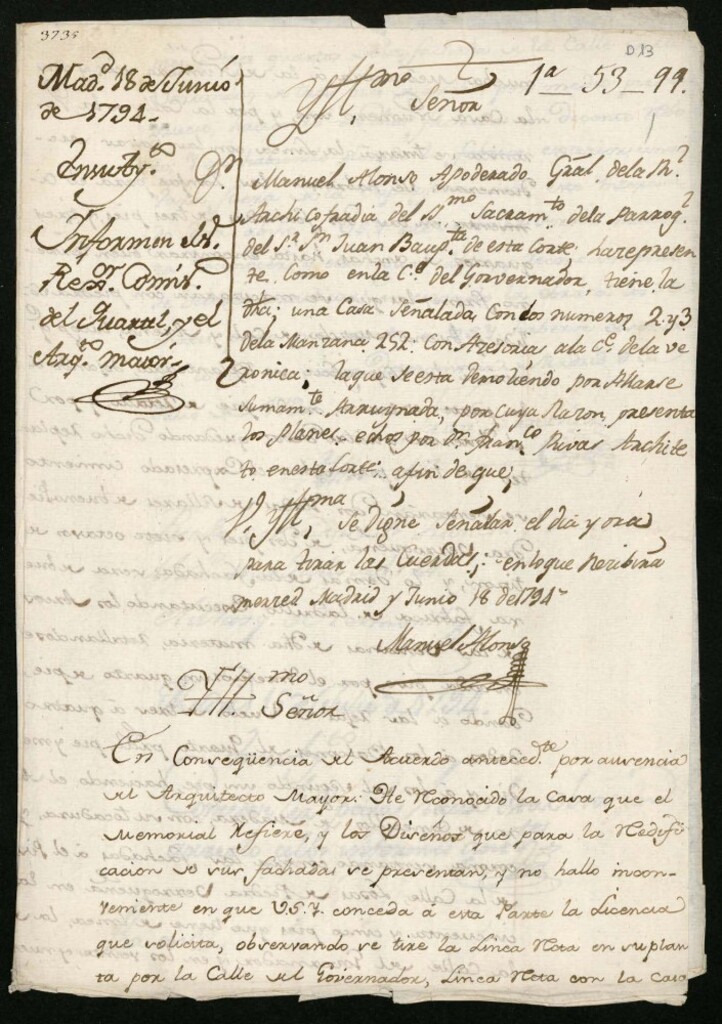 3735
D 13
1ª 53 - 99.
Madᵈ 18 de Junio
de 1794 -
Informen el Sʳ
Rexᵒʳ Comisº
del Quartel, y el
Arqᵗᵒ maiór
Yllᵐᵒ
Señor
Manuel Alonso Apoderado Gral. de la Rˡ
Archicofradia del Sᵐᵒ Sacramᵗᵒ de la Parroqˡ
del Sʳ Sⁿ Juan Baupᵗᵃ de esta Corte; Ha represen
te, Como en la Cᵉ del Gorvernador, tiene, la
dha; una Casa Señalada Con los numeros 2 y 3
de la Manzana 252: Con Acesorias a la Cᵉ de la ve
ronica; la que se esta demoliendo por Allarse
sumamᵗᵉ Arruynada, por cuya Razon, presenta
los planes echos por Dⁿ Franᶜᵒ Rivas Archite
tº en esta Corte afin de que,
V. Yllᵐᵃ Se digne Señalar el dia y ora
para tirar las Cuerdas; en loque Recibira
merced Madrid y Junio 18 de 1794
Manuel Alonso
Yllᵐᵒ
Señor
En Conseqüencia del Acuerdo antecedᵗᵉ por ausencia
del Arquitecto Mayor: He reconocido la Casa que el
Memorial refiere, y los Diseños que para la redifi
cacion de sus fachadas se presentan, y no hallo incon-
veniente en que V.S.Y. conceda á esta Parte la Licencia
que solicita, observando se tire la Linea recta en su plan
ta por la Calle del Governador, Linea recta con la casa